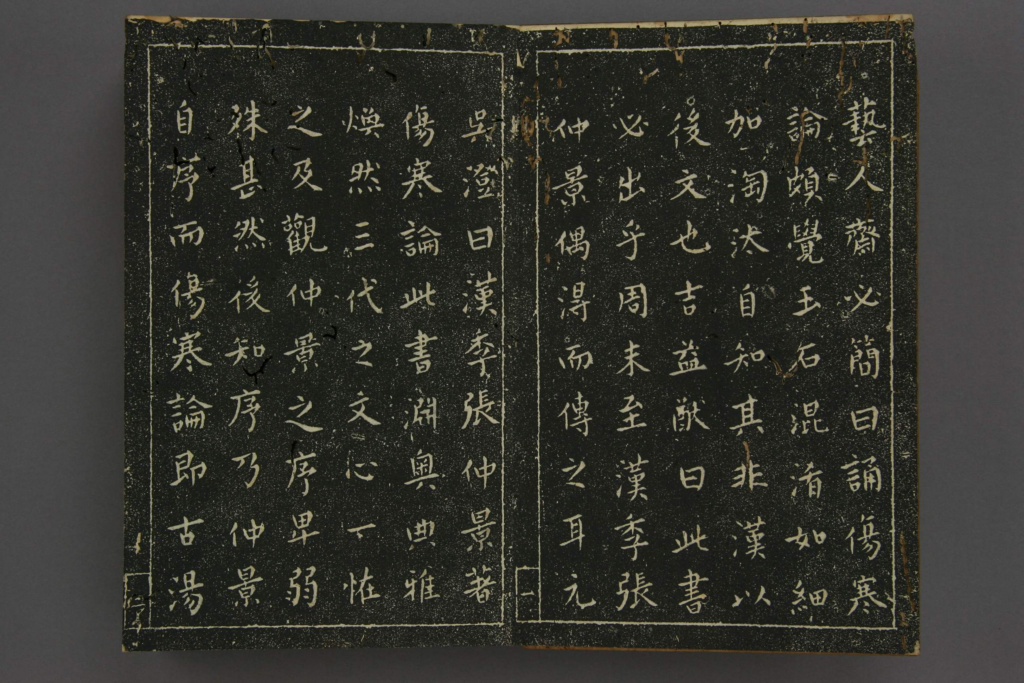 藝人齋必簡曰誦傷寒
論頗覺玉石混淆如細
加淘汰自知其非漢以
後文也吉益猷曰此書
必出乎周末至漢季張
仲景偶得而傳之耳元
吳澄曰漢季張仲景著
傷寒論此書淵奥典雅
煥然三代之文心一怪
之及觀仲景之序卑弱
殊甚然後知序乃仲景
自序而傷寒論即古湯